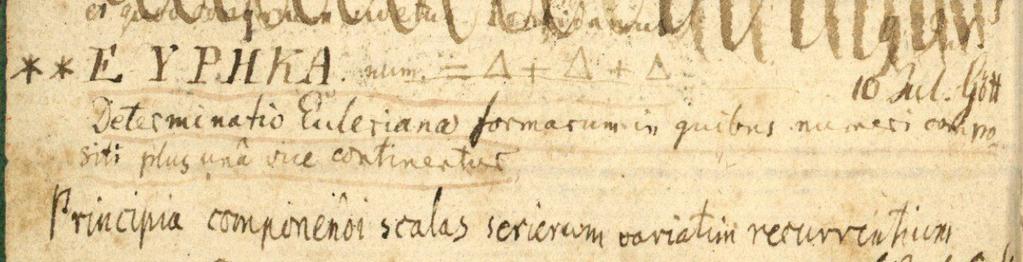 ** ΕΥΡΗΚΑ. num. = Δ + Δ + Δ
10 Jul. Gött
Determinatio Euleriana formarum in quibus numeri compo
siti plus unâ vice continentur
Principia componendi scalas serierum variatim recurrentium